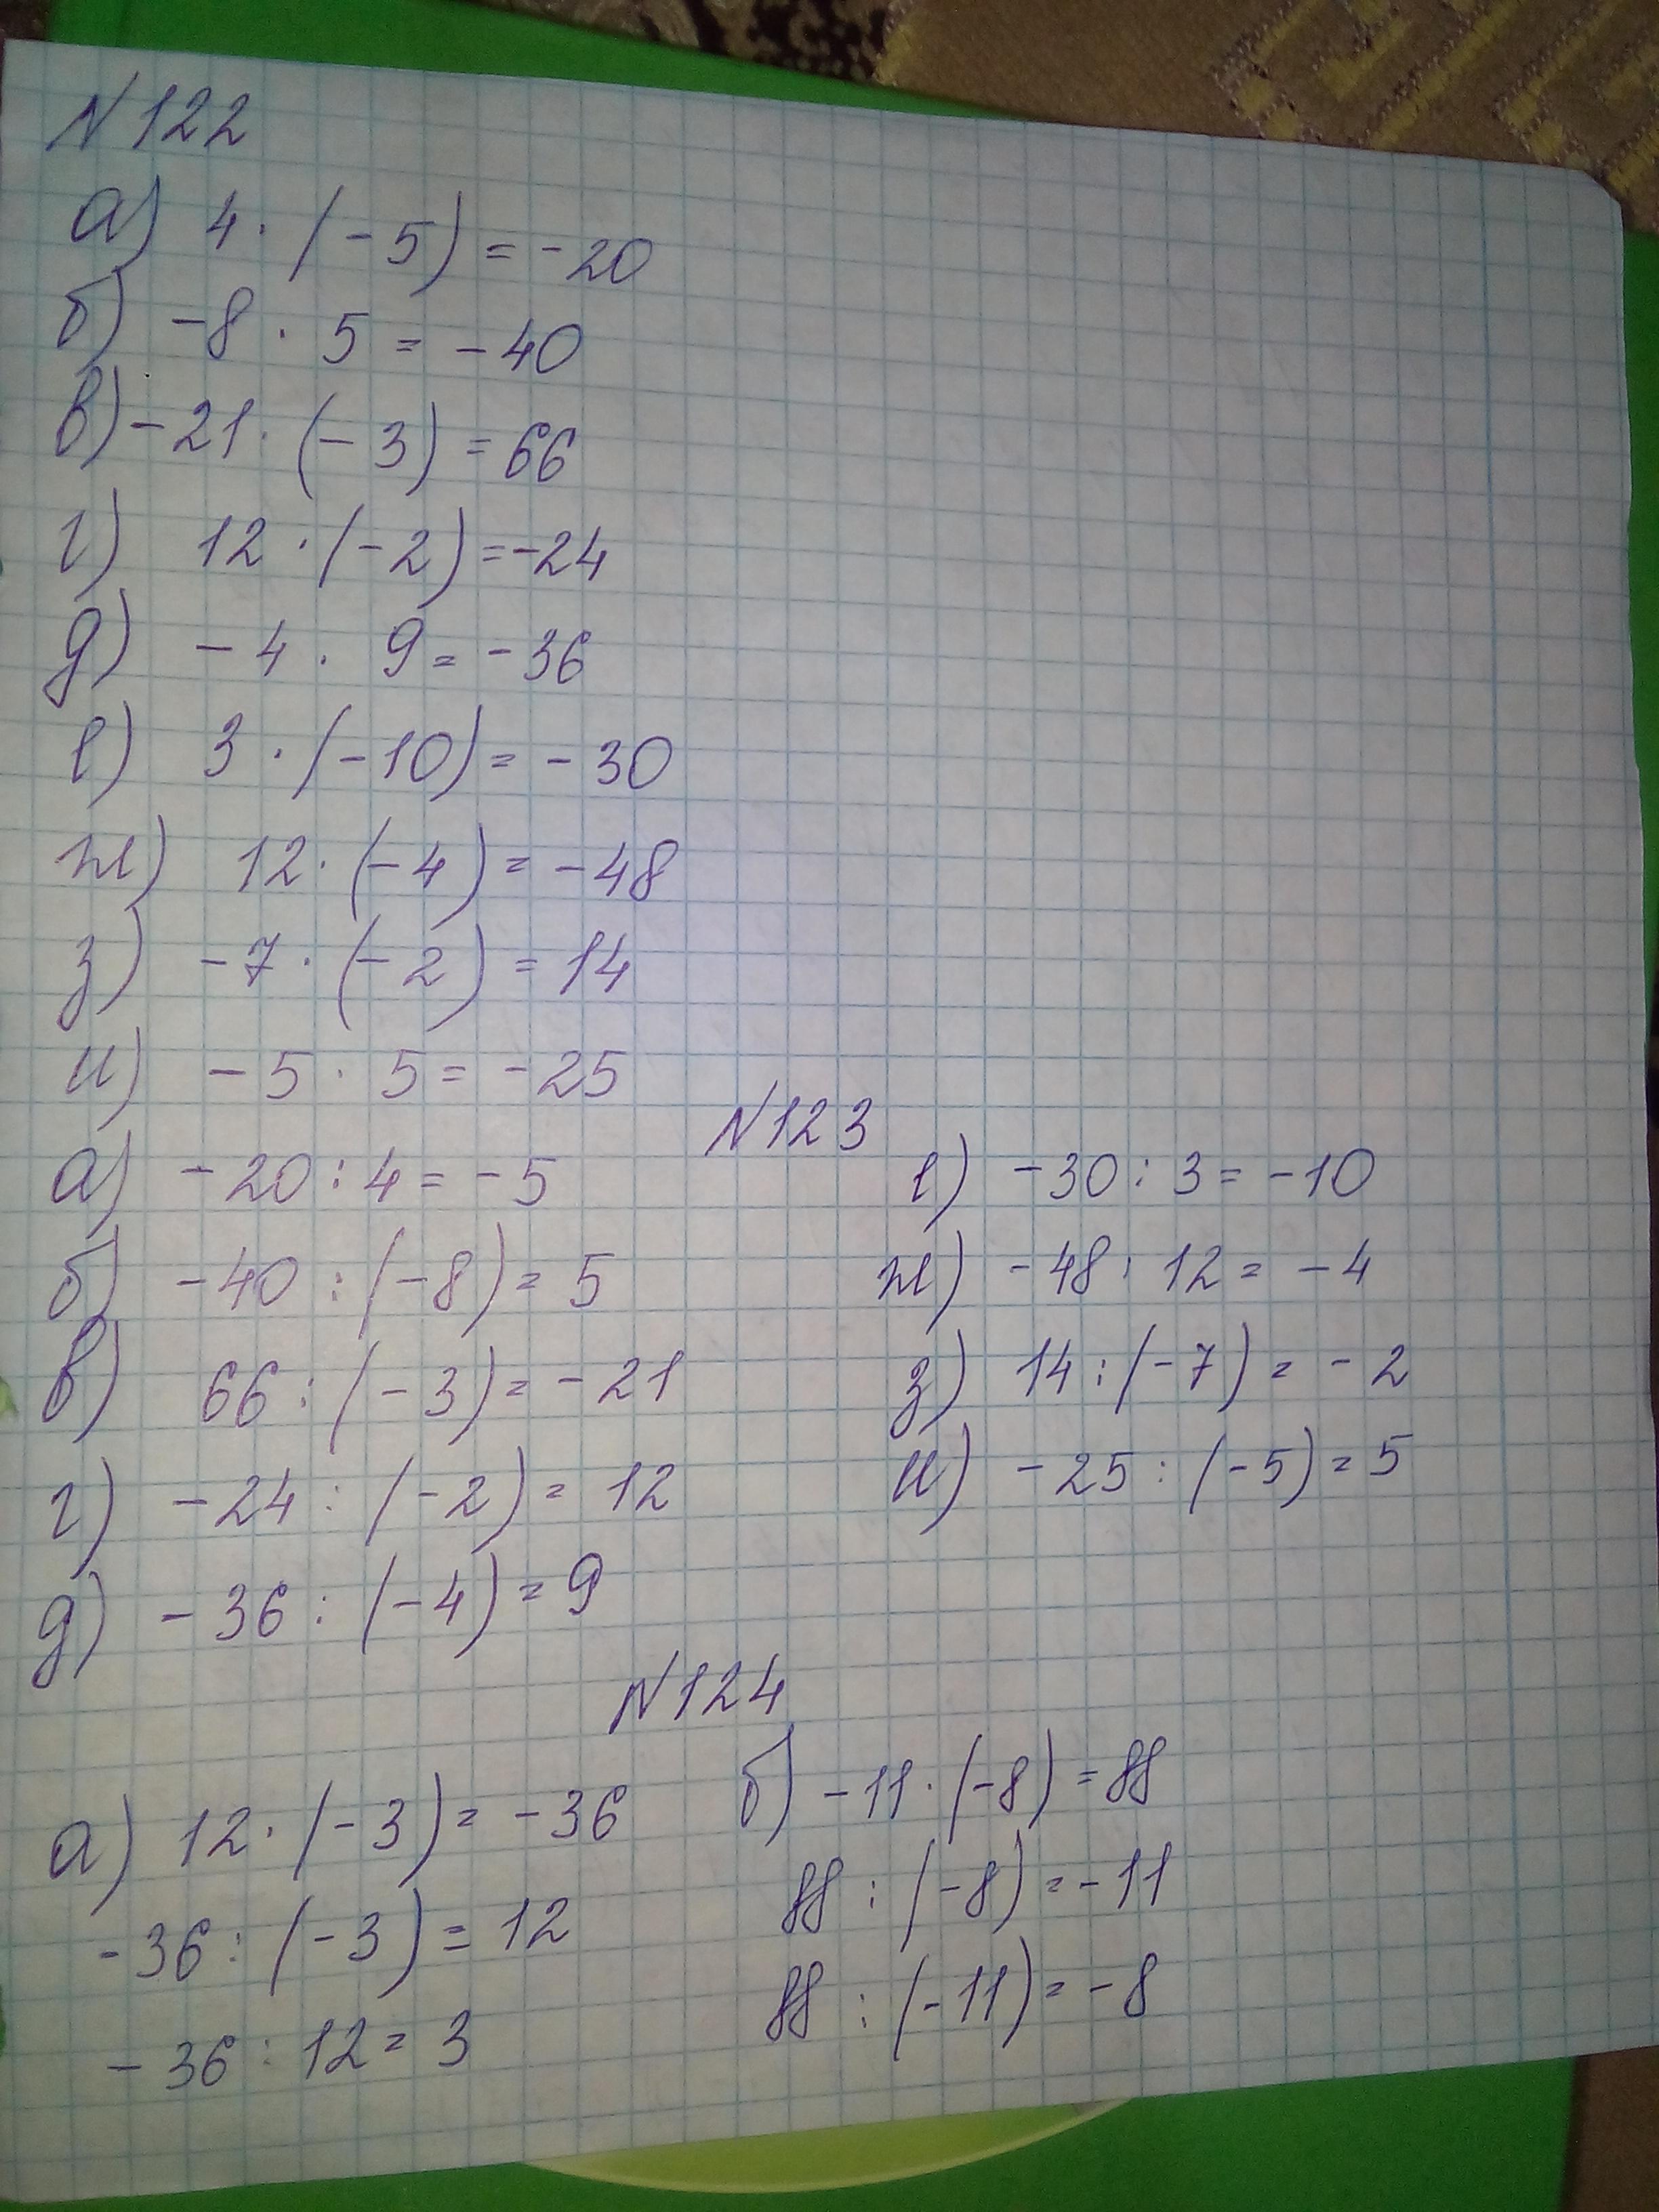 N 122
а) 4 · (-5) = -20
б) -8 · 5 = -40
в) -21 · (-3) = 66
г) 12 · (-2) = -24
д) -4 · 9 = -36
е) 3 · (-10) = -30
ж) 12 · (-4) = -48
з) -7 · (-2) = 14
и) -5 · 5 = -25
N 123
а) -20 : 4 = -5
б) -40 : (-8) = 5
в) 66 : (-3) = -21
г) -24 : (-2) = 12
д) -36 : (-4) = 9
е) -30 : 3 = -10
ж) -48 : 12 = -4
з) 14 : (-7) = -2
и) -25 : (-5) = 5
N 124
а) 12 · (-3) = -36
-36 : (-3) = 12
-36 : 12 = 3
б) -11 · (-8) = 88
88 : (-8) = -11
88 : (-11) = -8